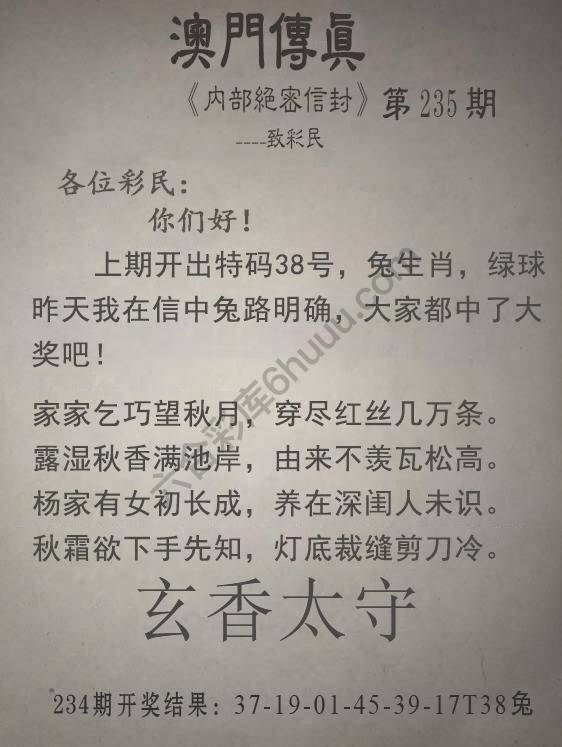 澳門傳眞
《内部絕密信封》第235期
----致彩民
各位彩民：
你们好！
上期开出特码38号，兔生肖，绿球
昨天我在信中兔路明确，大家都中了大
奖吧！
家家乞巧望秋月，穿尽红丝几万条。
露湿秋香满池岸，由来不羡瓦松高。
杨家有女初长成，养在深闺人未识。
秋霜欲下手先知，灯底裁缝剪刀冷。
玄香太守
234期开奖结果：37-19-01-45-39-17T38兔
六合彩库6huuu.com